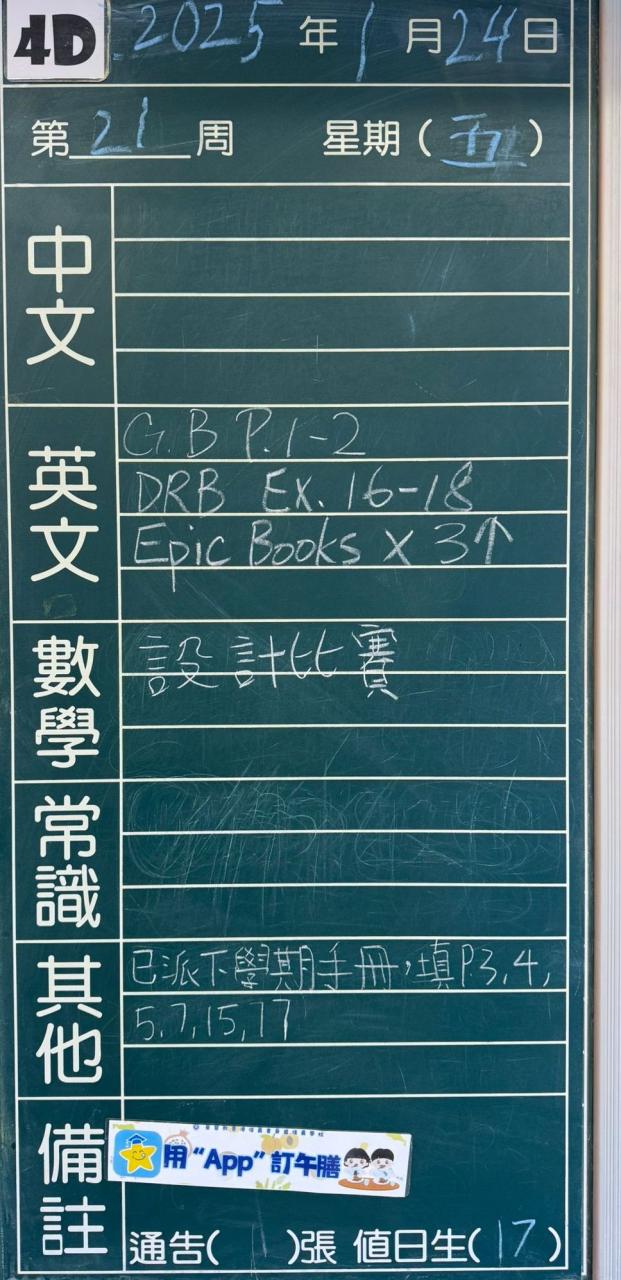 4D 2025 年 1 月 24 日
第 21 周 星期(五)
中文
英文
G.B P.1-2
DRB Ex. 16-18
Epic Books x 3↑
數學
設計比賽
常識
其他
已派下學期手冊，填P.3,4,
5,7,15,17
備註
用“App”訂午膳
通告( )張 值日生(17)